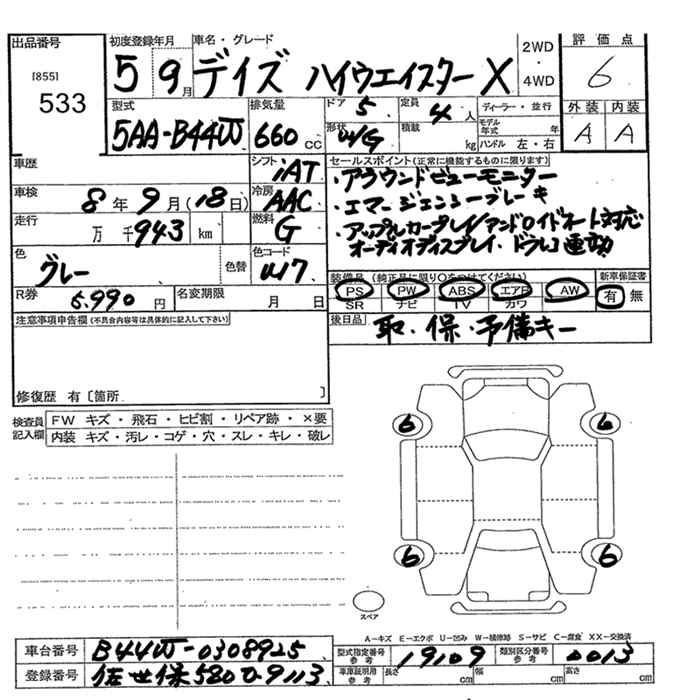 出品番号
[855]
533
初度登録年月 車名・グレード
5 9月 デイズ ハイウエイスター X
2WD
・
4WD
評価点
6
型式 排気量 ドア 定員
5AA-B44W 660cc 5 4人
形状 積載 kg
W/G
ディーラー・並行
モデル年式 年
ハンドル 左・右
外装 内装
A A
車歴
シフト iAT
車検 8年9月(18日)
冷房 AAC
走行 万 千 943 km
燃料 G
色 グレー 色替
色コード
R券 5.990円 名変期限 月 日
セールスポイント(正常に機能するものに限ります)
・アラウンドビューモニター
・エマージェンシーブレーキ
・アップルカープレイ/アンドロイドオート対応
オーディオディスプレイ・ドラレコ連動
装備品(純正品に限り○をつけてください) 新車保証書
PS PW ABS エアB AW 有 無
SR ナビ TV カワ
後日品 取・保・予備キー
注意事項申告欄(不具合内容等は具体的に記入して下さい)
修復歴 有〔箇所 〕
検査員記入欄
FW キズ・飛石・ヒビ割・リペア跡・×要
内装 キズ・汚レ・コゲ・穴・スレ・キレ・破レ
6 6
6 6
スペア
A-キズ E-エクボ U-凹み W-補修跡 S-サビ C-腐食 XX-交換済
車台番号 B44W-0308925
登録番号 佐世保580 9113
型式指定番号 参考 19109 類別区分番号 参考 0013
車庫証明用 参考 長さ cm 幅 cm 高さ cm